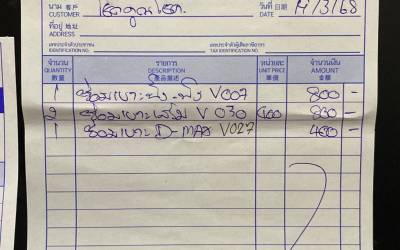 นาม 客戶 วันที่ 日期 14/3/68
CUSTOMER
ที่อยู่ 地址
ADDRESS
เลขประจำตัวประชาชน เลขประจำตัวผู้เสียภาษีอากร
TAX IDENTIFICATION NO. TAX IDENTIFICATION NO.
จำนวน รายการ หน่วยละ จำนวนเงิน
QUANTITY DESCRIPTION UNIT PRICE AMOUNT
數量 產品描述 單價 金額
1 ซ่อมเบาะ V007 800 -
2 ซ่อมเบาะ V 030 400 800 -
1 ซ่อมเบาะ D-MAX V027 400 -